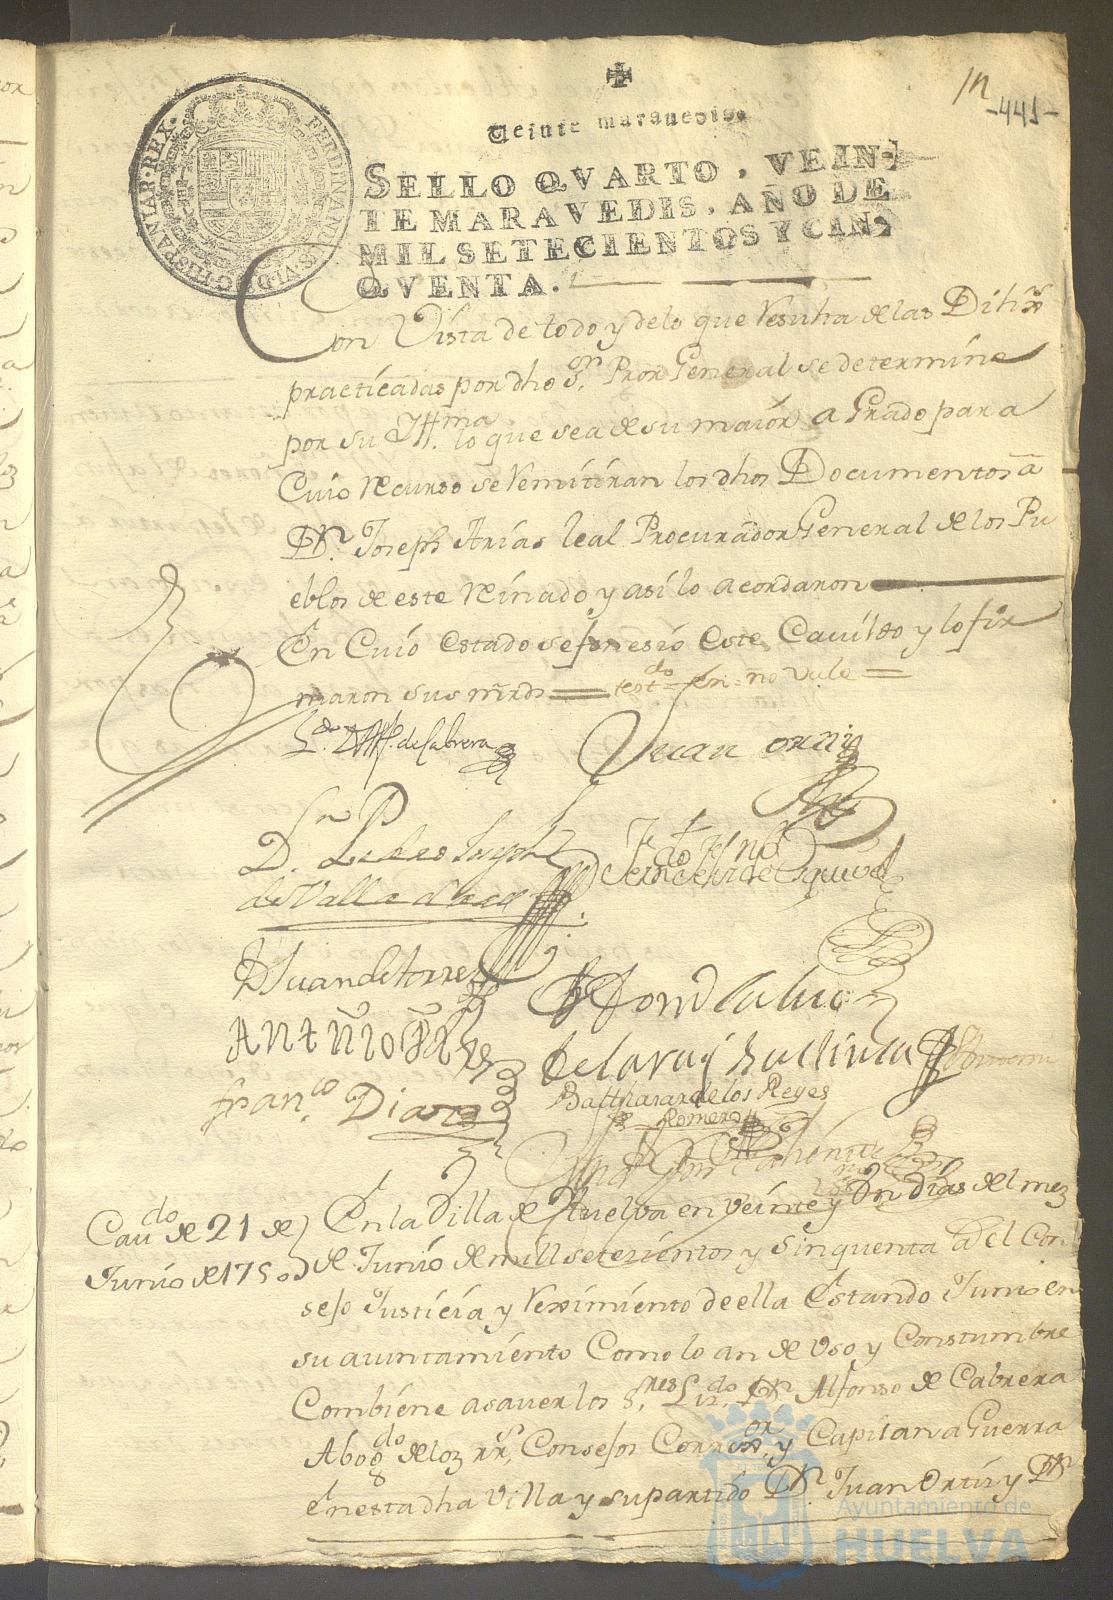 -441-
Veinte maravedis.
SELLO QVARTO, VEIN-
TE MARAVEDIS, AÑO DE
MIL SETECIENTOS Y CIN-
QVENTA.
FERDINANDUS VI D G HISPANIAR REX
Con Vista de todo y de lo que Resulta de las Dilixs
practicadas por dho Sor Pror General se determine
por su Yttma lo que sea de su maior a Grado para
Cuio recurso se Remitiran los dhos Documentos a
Dn Joseph Arias leal Procurador General de los Pu
eblos de este Reinado y asi lo acordaron
En Cuio estado se fenesio este Cavildo y lo fir
maron sus mrds = testdo = fen = no vale =
Ldo Dn Alfo de Cabrera
Juan Ortiz
Dn Pedro
de Valla
de Esquivel
D Juan de torres
Antonio
franco Diaz
Balthasar de los Reyes
Romero
Cavdo de 21 de
Junio de 1750
En la Villa de Huelva en veinte y Un dias del mez
de Junio de mill setezientos y Sinquenta a el Con
sejo Justicia y reximiento de ella Estando Juntos en
su aiuntamiento Como lo an de Uso y Constumbre
Combiene a saver los Sres Lizdo Dn Alfonso de Cabrera
Abogdo de loz rrs Consejos Correxor y Capitan a Guerra
en esta dha Villa y su partido Dn Juan Ortiz y Dn
Ayuntamiento de
HUELVA